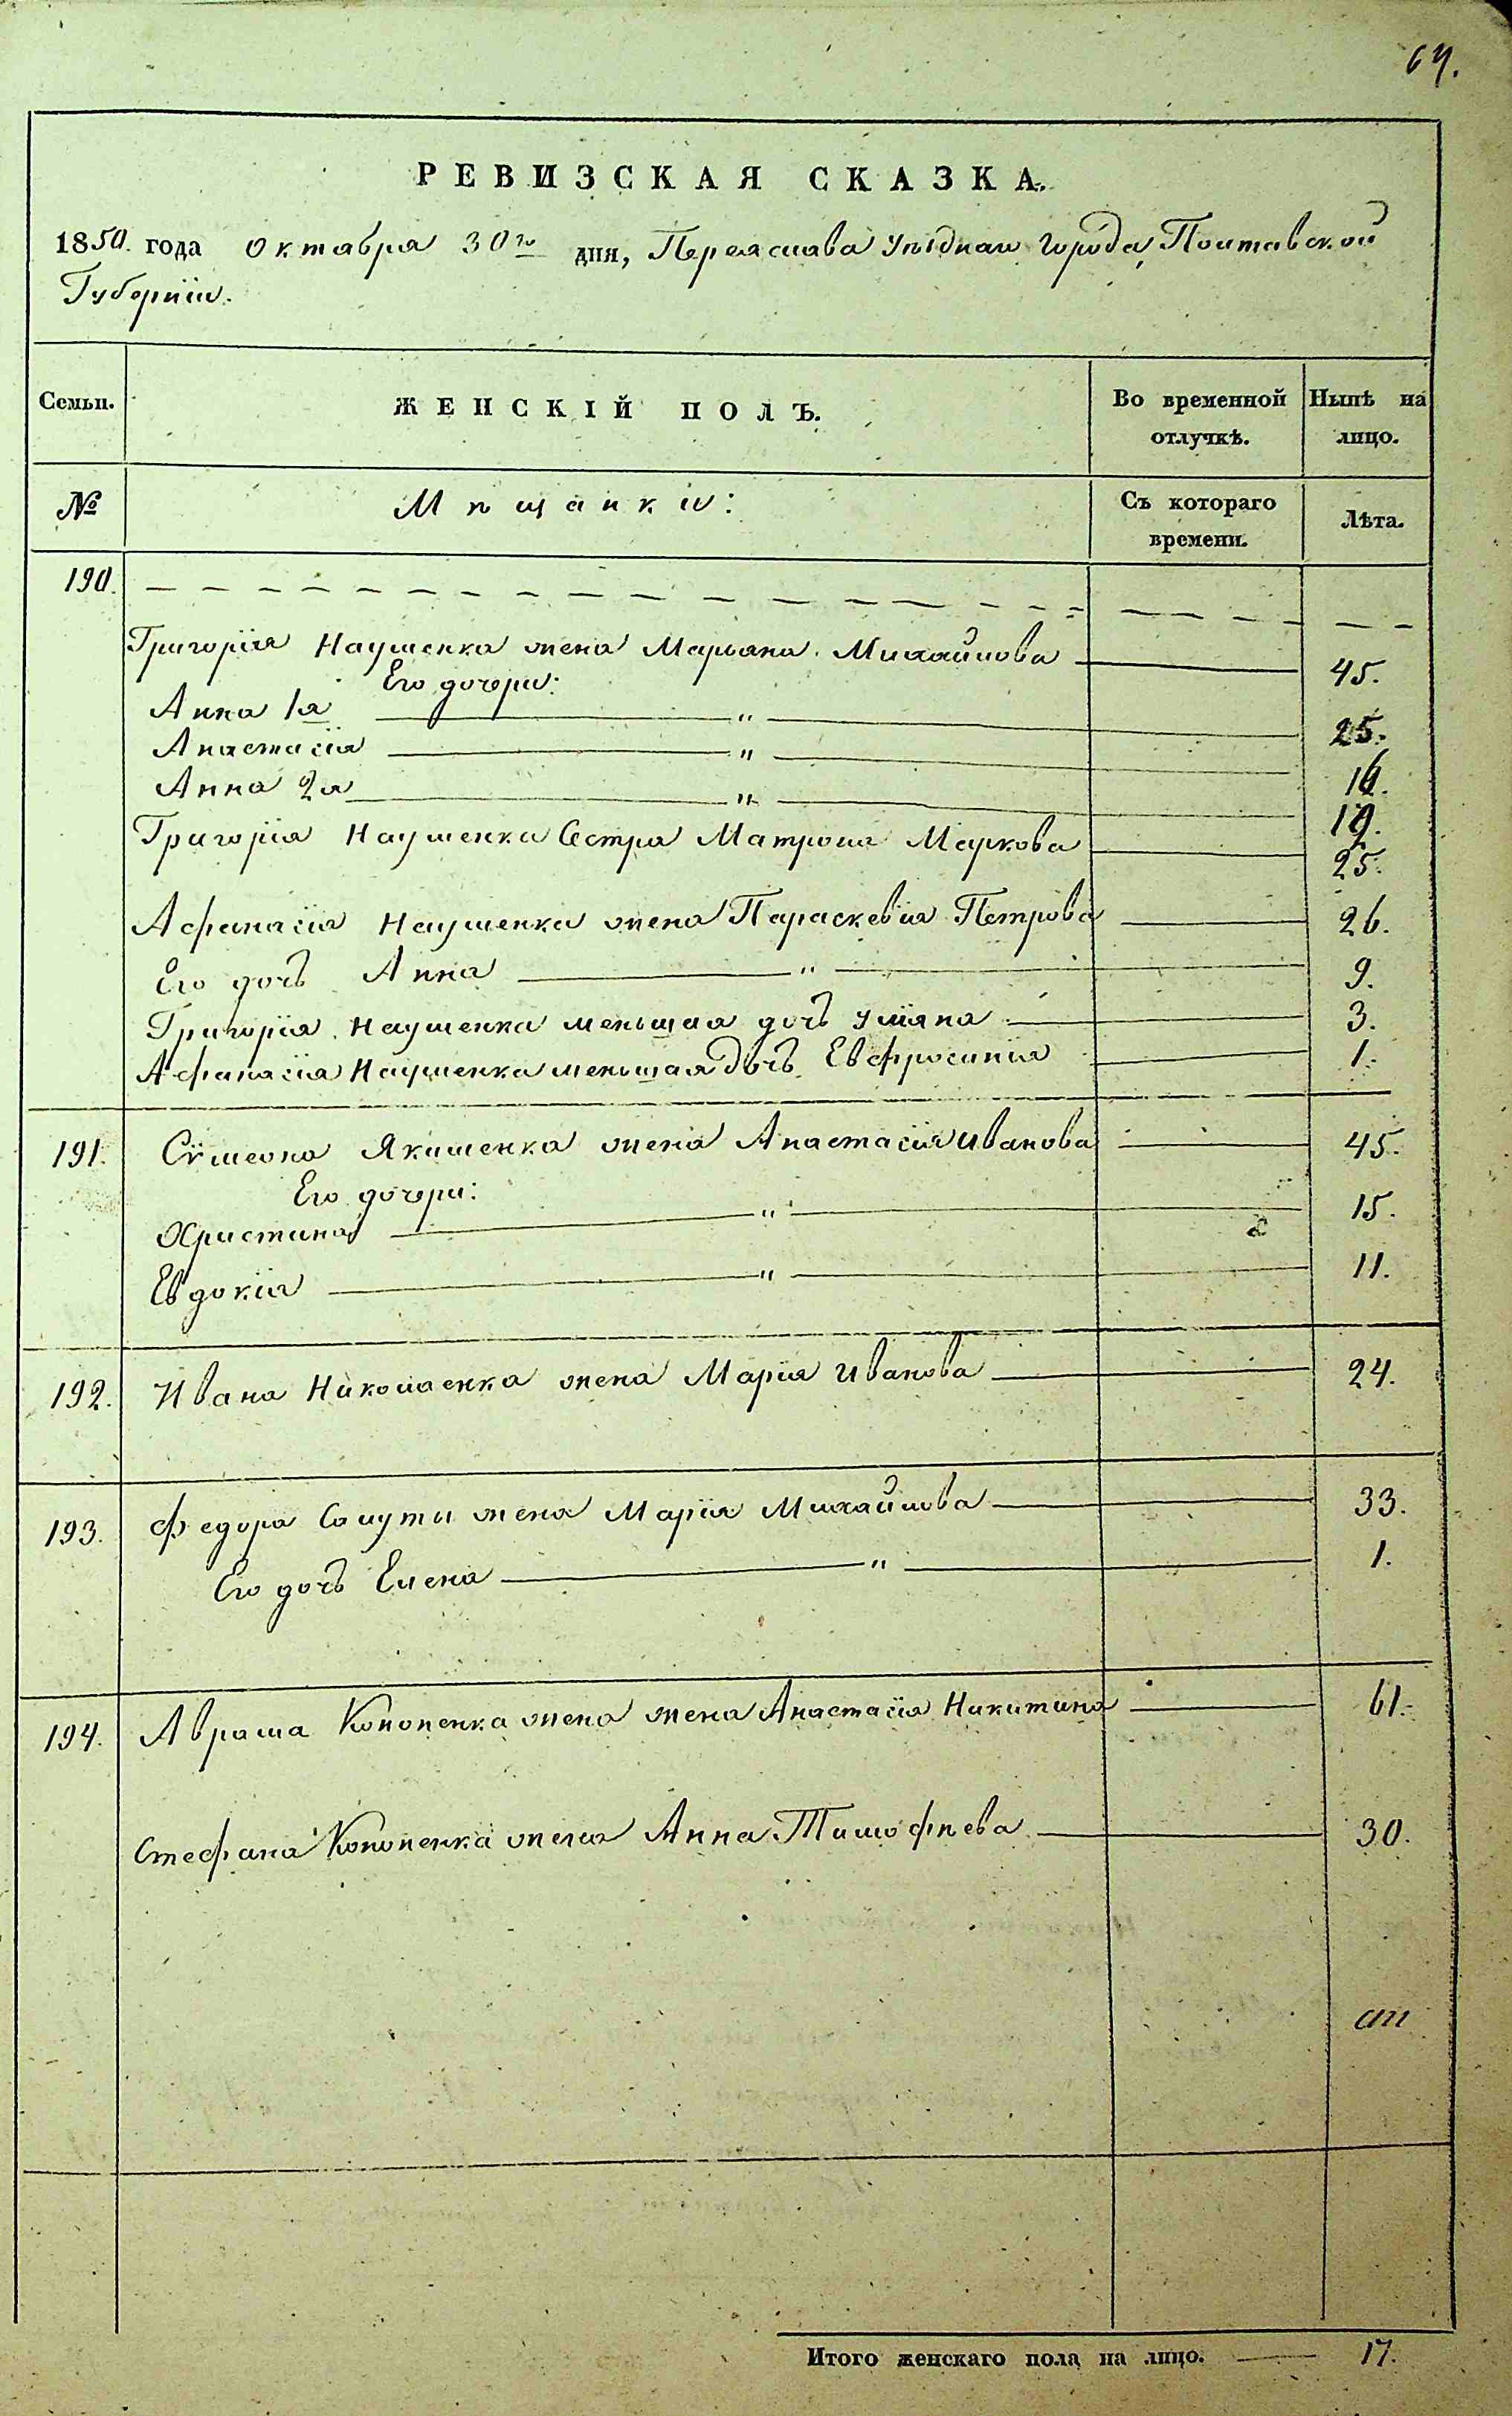 64.
РЕВИЗСКАЯ СКАЗКА.
1850. года Октября 30го дня, Переяслава уѣзднаго города, Полтавской
Губерніи.
Семьи. ЖЕНСКІЙ ПОЛЪ. Во временной отлучкѣ. Нынѣ на лицо.
№ Мѣщанки: Съ котораго времени. Лѣта.
190.
Григорія Наушенка жена Марьяна Михайлова 45.
Его дочери:
Анна 1я " 25.
Анастасія " 16.
Анна 2я " 19.
Григорія Наушенка Сестра Матрона Маркова 25.
Афанасія Наушенка жена Параскевія Петрова 26.
Его дочь Анна " 9.
Григорія Наушенка меньшая дочь Уліяна 3.
Афанасія Наушенка меньшая дочь Евфросинія 1.
191. Сѵмеона Якименка жена Анастасія Иванова 45.
Его дочери:
Христина " 15.
Евдокія " 11.
192. Ивана Николаенка жена Марія Иванова 24.
193. Федора Солуты жена Марія Михайлова 33.
Его дочь Елена " 1.
194. Аврама Кононенка жена жена Анастасія Никитина 61.
Стефана Кононенка жена Анна Тимофѣева 30.
Итого женскаго пола на лицо. 17.